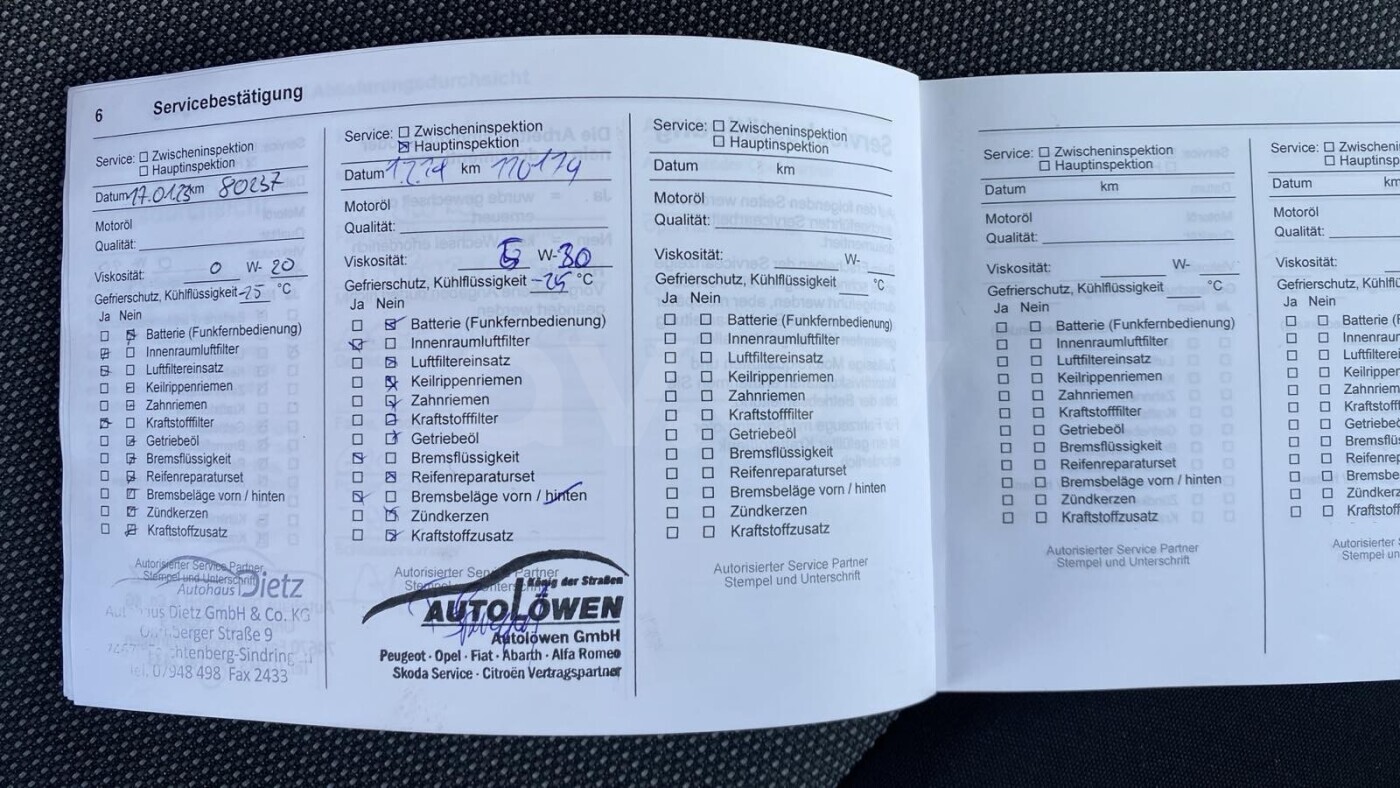 6 Servicebestätigung
Service: Zwischeninspektion
Hauptinspektion
Datum 17.01.23 km 80237
Motoröl
Qualität:
Viskosität: 0 W- 20
Gefrierschutz, Kühlflüssigkeit -25 °C
Ja Nein
Batterie (Funkfernbedienung)
Innenraumluftfilter
Luftfiltereinsatz
Keilrippenriemen
Zahnriemen
Kraftstofffilter
Getriebeöl
Bremsflüssigkeit
Reifenreparaturset
Bremsbeläge vorn / hinten
Zündkerzen
Kraftstoffzusatz
Autorisierter Service Partner
Stempel und Unterschrift
Autohaus Dietz
Dietz GmbH & Co. KG
Straße 9
Tel. 07948 498 Fax 2433
Service: Zwischeninspektion
Hauptinspektion
Datum km
Motoröl
Qualität:
Viskosität: 5 W-30
Gefrierschutz, Kühlflüssigkeit -25 °C
Ja Nein
Batterie (Funkfernbedienung)
Innenraumluftfilter
Luftfiltereinsatz
Keilrippenriemen
Zahnriemen
Kraftstofffilter
Getriebeöl
Bremsflüssigkeit
Reifenreparaturset
Bremsbeläge vorn / hinten
Zündkerzen
Kraftstoffzusatz
Autorisierter Service Partner
König der Straßen
AUTOLÖWEN
Autolöwen GmbH
Peugeot · Opel · Fiat · Abarth · Alfa Romeo
Skoda Service · Citroën Vertragspartner
Service: Zwischeninspektion
Hauptinspektion
Datum km
Motoröl
Qualität:
Viskosität: W-
Gefrierschutz, Kühlflüssigkeit °C
Ja Nein
Batterie (Funkfernbedienung)
Innenraumluftfilter
Luftfiltereinsatz
Keilrippenriemen
Zahnriemen
Kraftstofffilter
Getriebeöl
Bremsflüssigkeit
Reifenreparaturset
Bremsbeläge vorn / hinten
Zündkerzen
Kraftstoffzusatz
Autorisierter Service Partner
Stempel und Unterschrift
Service: Zwischeninspektion
Hauptinspektion
Datum km
Motoröl
Qualität:
Viskosität: W-
Gefrierschutz, Kühlflüssigkeit °C
Ja Nein
Batterie (Funkfernbedienung)
Innenraumluftfilter
Luftfiltereinsatz
Keilrippenriemen
Zahnriemen
Kraftstofffilter
Getriebeöl
Bremsflüssigkeit
Reifenreparaturset
Bremsbeläge vorn / hinten
Zündkerzen
Kraftstoffzusatz
Autorisierter Service Partner
Stempel und Unterschrift
Service: Zwischeni
Hauptinsp
Datum km
Motoröl
Qualität:
Viskosität:
Gefrierschutz, Kühlflü
Ja Nein
Batterie (F
Innenraum
Luftfilterei
Keilrippen
Zahnriem
Kraftstoff
Getriebeö
Bremsflü
Reifenrep
Bremsbe
Zündkerz
Kraftstof
Autorisierter
Stempel un